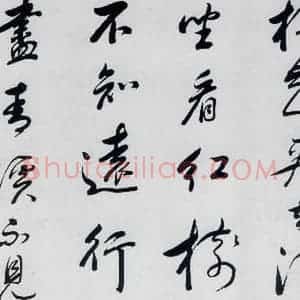 坐看紅樹
不知遠行
盡青溪不見
Shufazilian.com